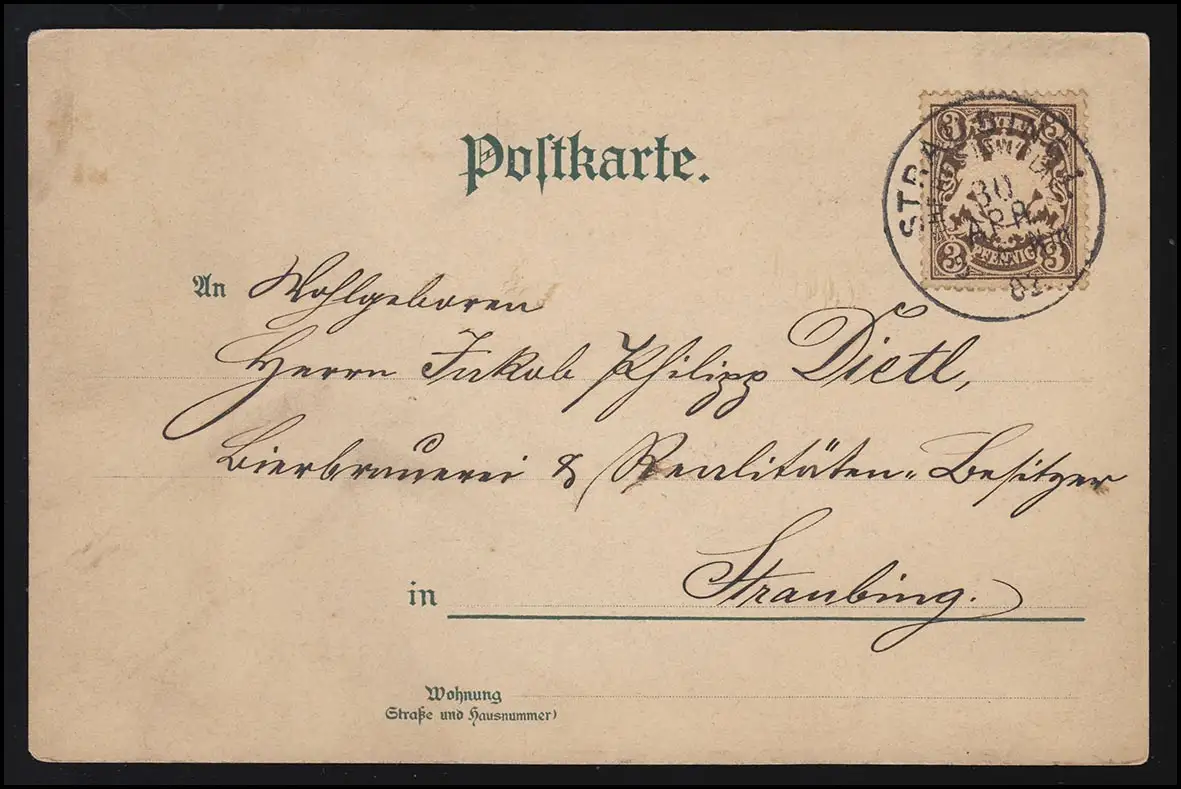 Postkarte.
STRAUBING
30
APR
3 3
3 PFENNIG 3
An Wohlgeboren
Herrn Jakob Philipp Dietl,
Bierbrauerei & Realitäten-Besitzer
in Straubing.
Wohnung
(Straße und Hausnummer)